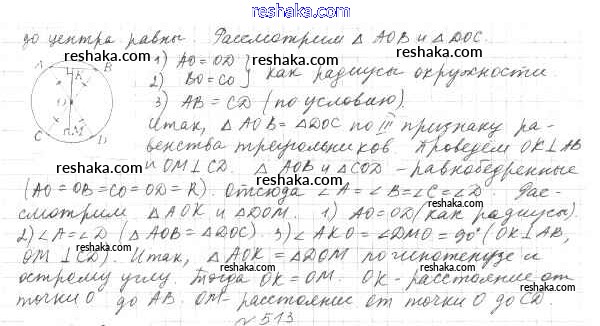 reshaka.com
до центра равны. Рассмотрим △ AOB и △ DOC.
reshaka.com
1) AO = OD
2) BO = CO } как радиусы окружности.
reshaka.com
3) AB = CD (по условию).
A B K O C M D
Итак, △ AOB = △ DOC по III признаку ра-
reshaka.com
венства треугольников. Проведем OK ⊥ AB
reshaka.com
и OM ⊥ CD. △ AOB и △ COD - равнобедренные
(AO = OB = CO = OD = R). Отсюда ∠A = ∠B = ∠C = ∠D. Рас-
reshaka.com
смотрим △ AOK и △ DOM. 1) AO = OD (как радиусы).
reshaka.com
2) ∠A = ∠D (△ AOB = △ DOC). 3) ∠AKO = ∠DMO = 90° (OK ⊥ AB,
reshaka.com
OM ⊥ CD). Итак, △ AOK = △ DOM по гипотенузе и
reshaka.com
острому углу. Тогда OK = OM. OK - расстояние от
точки O до AB. OM - расстояние от точки O до CD.
reshaka.com
№ 513